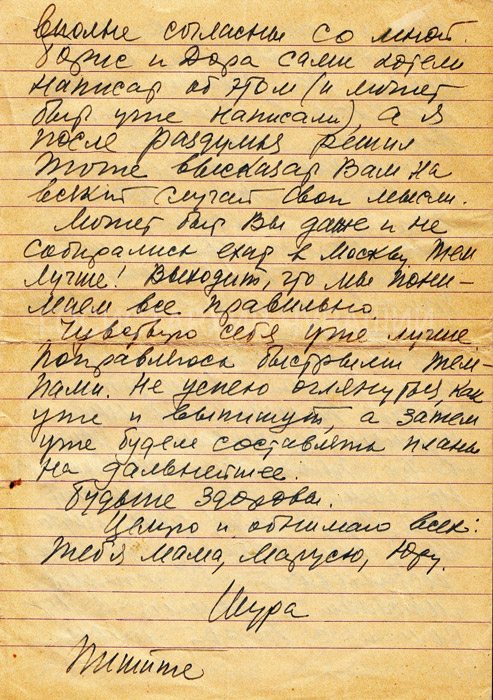 вполне согласны со мной.
Борис и Дора сами хотели
написать об этом (и может
быть уже написали), а я
после раздумья решил
тоже высказать Вам на
всякий случай свои мысли.
Может быть Вы даже и не
собирались ехать в Москву, тем
лучше! Выходит, что мы пони-
маем все правильно.
Чувствую себя уже лучше,
поправляюсь быстрыми тем-
пами. Не успею оглянуться, как
уже и выпишут, а затем
уже будем составлять планы
на дальнейшее.
Будьте здоровы.
Целую и обнимаю всех:
тебя мама, Марусю, Юру.
Шура
Пишите